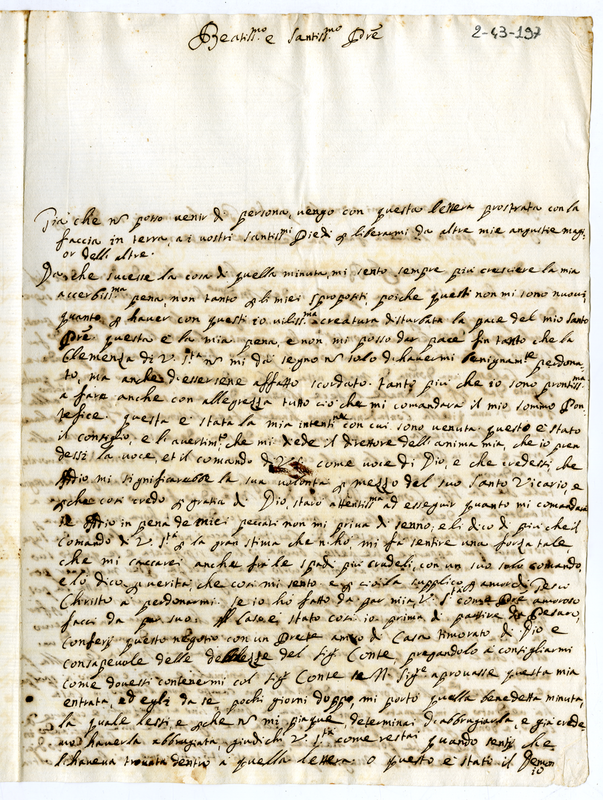 Beatiss.mo e Santiss.mo Pre
2-43-197
Gia che nō posso venir di persona, vengo con questa lettera prostrata con la
faccia in terra a i vostri santiss.mi Piedi p liberarmi da altre mie angustie magi-
or dell altre.
Da che sucesse la cosa di quella minuta, mi sento sempre piu crescere la mia
accerbiss.ma pena, non tanto p li miei spropositi poiche questi non mi sono nuovi
quanto p haver con questi io viliss.ma creatura disturbata la pace del mio Santo
Pre questa e la mia pena, e non mi posso dar pace fin tanto che la
Clemenza di V. S.tà nō mi dà segno nō solo di havermi benignam.te perdona-
to, ma anche d'essersene affatto scordato. tanto piu che io sono prontiss.ma
a fare anche con allegrezza tutto ciò che mi comandarà il mio sommo Pon
tefice. questa e stata la mia intent.ne con cui sono venuta questo e stato
il consiglio, e li avertim.ti che mi diede il direttore dell anima mia, che io pren
dessi la voce, et il comando di V. S.tà come voce di Dio, e che credessi, che
Iddio mi significarebbe la sua volontà p mezzo del suo Santo Vicario e
pche cosi credo p gratia di Dio, starò attentiss.ma ad esseguir quanto mi comandarà
se Iddio in pena de miei peccati non mi priva di senno, e li dico di più che il
Comando di V. S.tà p la gran stima che n'ho mi fà sentire una forza tale
che mi caccarei anche frà le spade più crudeli, con un suo solo comando,
e lo dico p verità, che cosi mi sento e p ciò la supplico p amor di Jesù
Christo a perdonarmi. se io ho fatto da par mia, V. S.tà come Pre amoroso
facci da par suo. Il caso e stato cosi io prima di partire da Pesaro,
Conferij questo negotio con un Prete amico di Casa timorato di Dio e
consapevole delle debolezze del Sig.r Conte pregandolo a consigliarmi
come dovesti contenermi col Sig.r Conte se N. Sig.re aprovasse questa mia
entrata, ed egli da se pochi giorni doppo, mi portò quella benedetta minuta,
la quale lesti e pche nō mi piaque determinai d'abbrugiarla, e già crede
vo haverla abbrugiata, giudichi V. S.tà come restai quando sentij che
l'haveva trovata dentro a quella lettera. o questo e stato il Demon
io